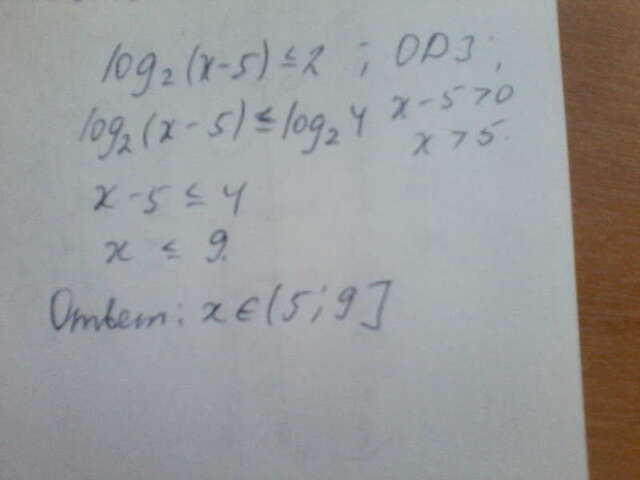 log₂(x-5) ≤ 2 ; ОДЗ;
log₂(x-5) ≤ log₂4 x-5>0
x>5.
x-5 ≤ 4
x ≤ 9.
Ответ: x∈(5;9]